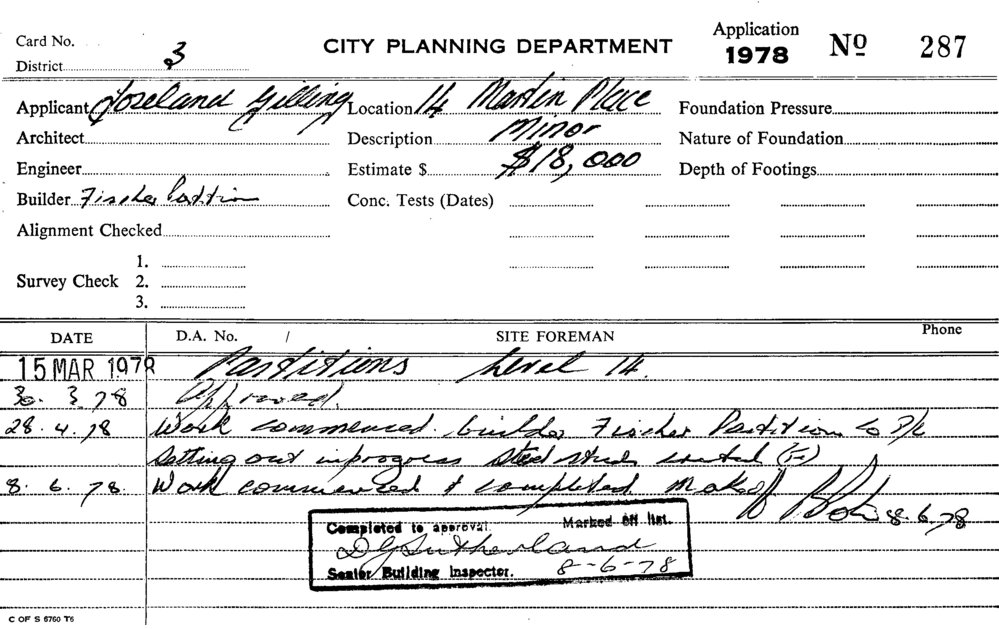 Card No.
CITY PLANNING DEPARTMENT
Application
1978
Nº 287
District 3
Applicant Joseland Gilling
Location 14 Martin Place
Foundation Pressure
Architect
Description Minor
Nature of Foundation
Engineer
Estimate $ $18,000
Depth of Footings
Builder Fischer Partition
Conc. Tests (Dates)
Alignment Checked
Survey Check
1.
2.
3.
DATE
D.A. No. /
SITE FOREMAN
Phone
15 MAR 1978 Partitions Level 14.
30. 3. 78 Approved.
28. 4. 78 Work commenced. builder Fischer Partition Co P/L
Setting out in progress Steel studs
8. 6. 78. Work commenced & completed.
8.6.78
Completed to approval. Marked off list.
D G Sutherland
Senior Building Inspector. 8-6-78
C OF S 6760 T6